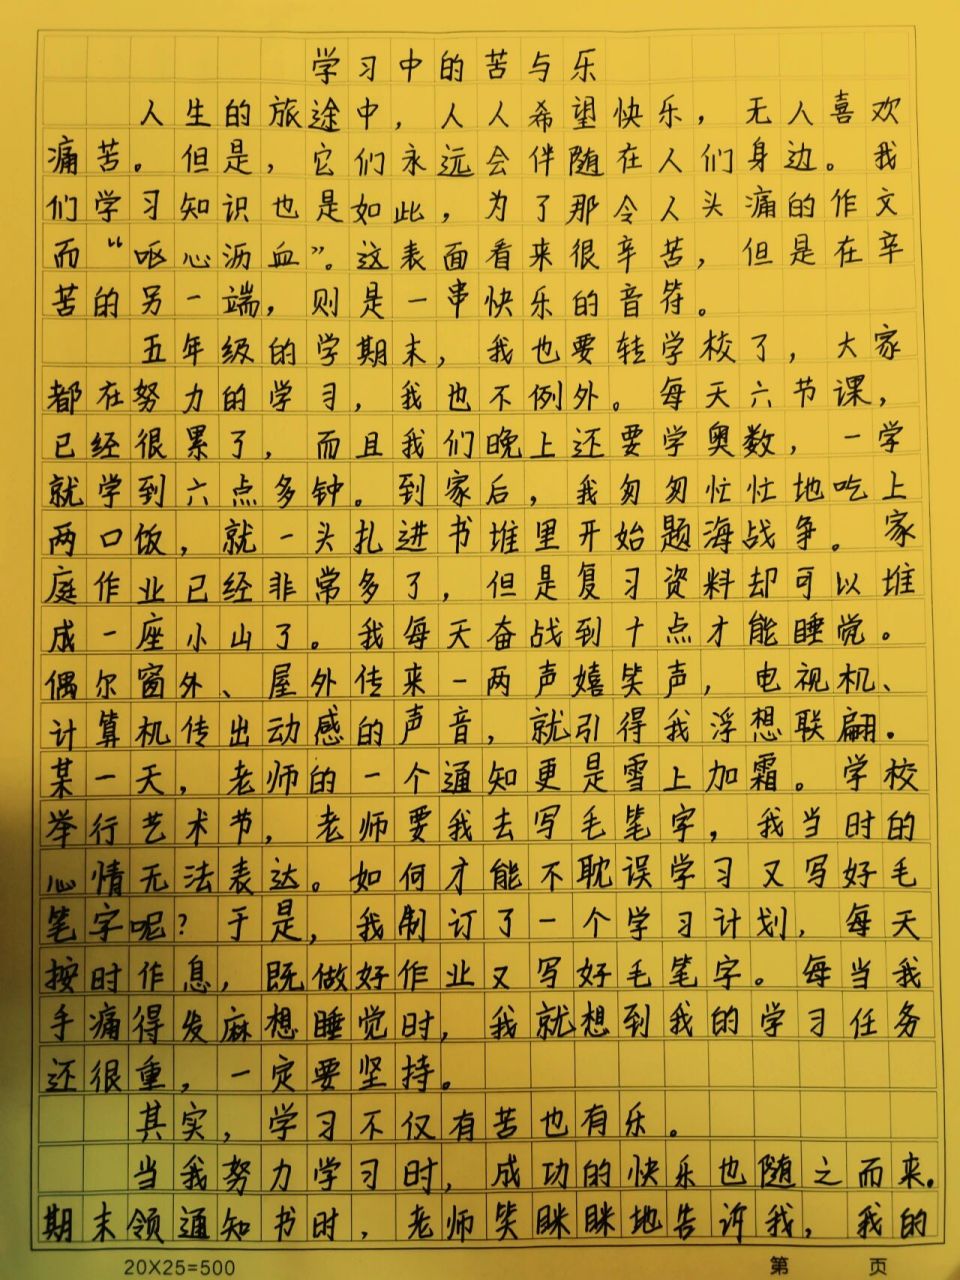 学习中的苦与乐
人生的旅途中，人人希望快乐，无人喜欢
痛苦。但是，它们永远会伴随在人们身边。我
们学习知识也是如此，为了那令人头痛的作文
而“呕心沥血”。这表面看来很辛苦，但是在辛
苦的另一端，则是一串快乐的音符。
五年级的学期末，我也要转学校了，大家
都在努力的学习，我也不例外。每天六节课，
已经很累了，而且我们晚上还要学奥数，一学
就学到六点多钟。到家后，我匆匆忙忙地吃上
两口饭，就一头扎进书堆里开始题海战争。家
庭作业已经非常多了，但是复习资料却可以堆
成一座小山了。我每天奋战到十点才能睡觉。
偶尔窗外、屋外传来一两声嬉笑声，电视机、
计算机传出动感的声音，就引得我浮想联翩。
某一天，老师的一个通知更是雪上加霜。学校
举行艺术节，老师要我去写毛笔字，我当时的
心情无法表达。如何才能不耽误学习又写好毛
笔字呢？于是，我制订了一个学习计划，每天
按时作息，既做好作业又写好毛笔字。每当我
手痛得发麻想睡觉时，我就想到我的学习任务
还很重，一定要坚持。
其实，学习不仅有苦也有乐。
当我努力学习时，成功的快乐也随之而来。
期末领通知书时，老师笑眯眯地告诉我，我的
20X25=500 第 页